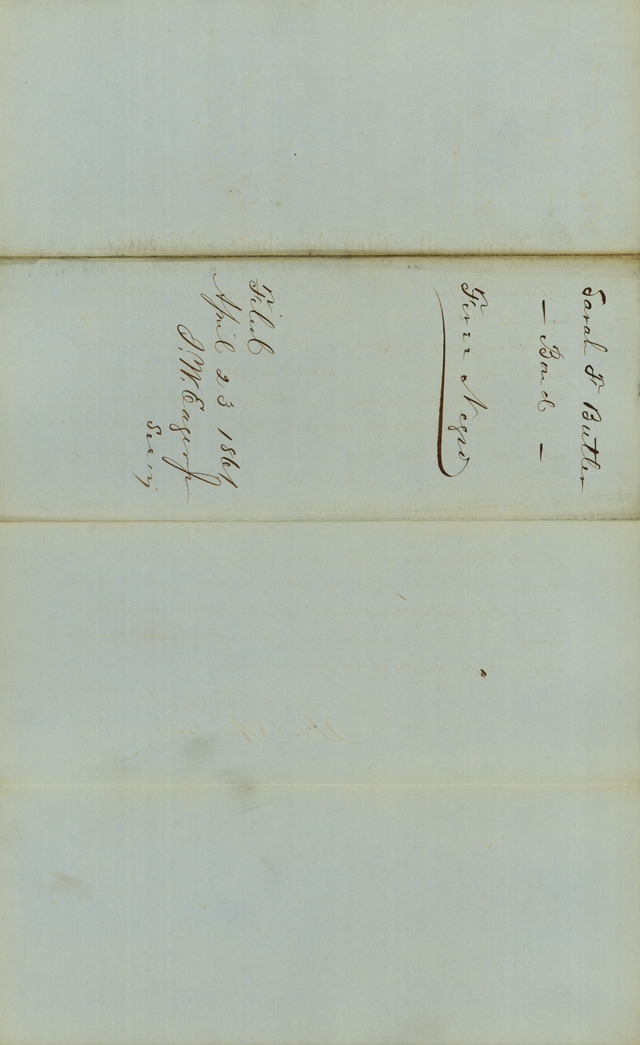 Sarah F Butler
— Bond —
Free Negro
Filed
April 23 1861